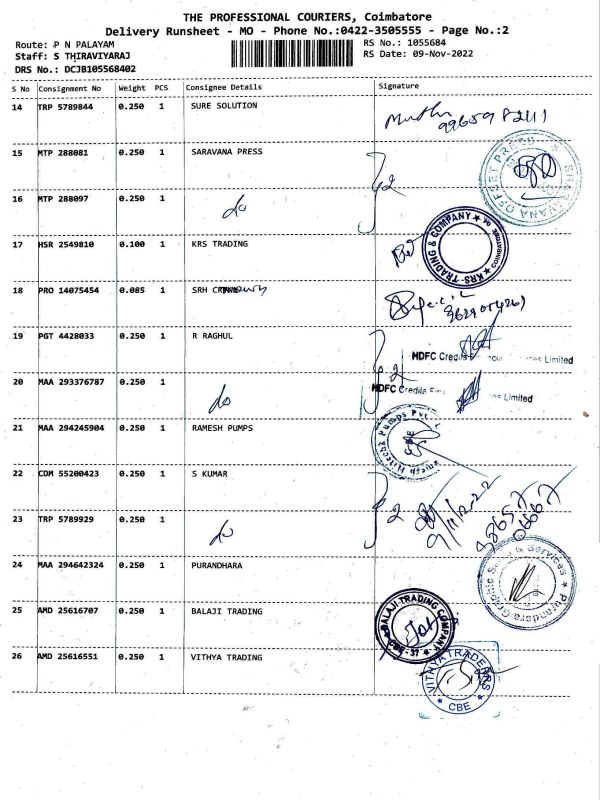 THE PROFESSIONAL COURIERS, Coimbatore
Delivery Runsheet - MO - Phone No.:0422-3505555 - Page No.:2
Route: P N PALAYAM
RS No.: 1055684
Staff: S THIRAVIYARAJ
RS Date: 09-Nov-2022
DRS No.: DCJB105568402
S No Consignment No Weight PCS Consignee Details Signature
14 TRP 5789844 0.250 1 SURE SOLUTION
15 MTP 288081 0.250 1 SARAVANA PRESS
16 MTP 288097 0.250 1 do
2
17 HSR 2549810 0.100 1 KRS TRADING
KRS-TRADING & COMPANY
18 PRO 14075454 0.085 1 SRH
19 PGT 4428033 0.250 1 R RAGHUL
HDFC Credila Limited
20 MAA 293376787 0.250 1 do
2
HDFC Credila Limited
21 MAA 294245904 0.250 1 RAMESH PUMPS
22 CDM 55200423 0.250 1 S KUMAR
23 TRP 5789929 0.250 1 do
2
9/11/2022
24 MAA 294642324 0.250 1 PURANDHARA
25 AMD 25616707 0.250 1 BALAJI TRADING
BALAJI TRADING COMPANY
26 AMD 25616551 0.250 1 VITHYA TRADING
VITHYA TRADERRS
CBE